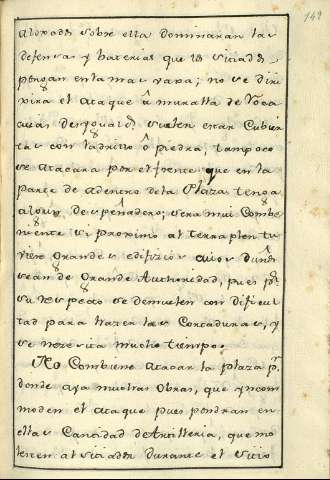 149
alorados sobre ella dominaran las
defensas y baterias que los sitiados
pongan en la mas vaxa; no se diri
xira el ataque â muralla de Roca
suelen estar Cubier
tas con ladrillo ô piedra, tampoco
se atacara por el frente que en la
parte de adentro de la Plaza tenga
algun despeñadero; sera mui Combe
niente si proximo al terraplen tu
viere grandes edifizios
sean de Grande Authoridad, pues pr
su respecto se demuelen con dificul
tad para hazer las Cortaduras, y
se nezesita mucho tiempo.
No Combiene atacar la plaza pr
donde aya muchas obras, que yncom
moden el ataque pues pondran en
ellas Cantidad de Artilleria, que mo
lesten al sitiador durante el sitio